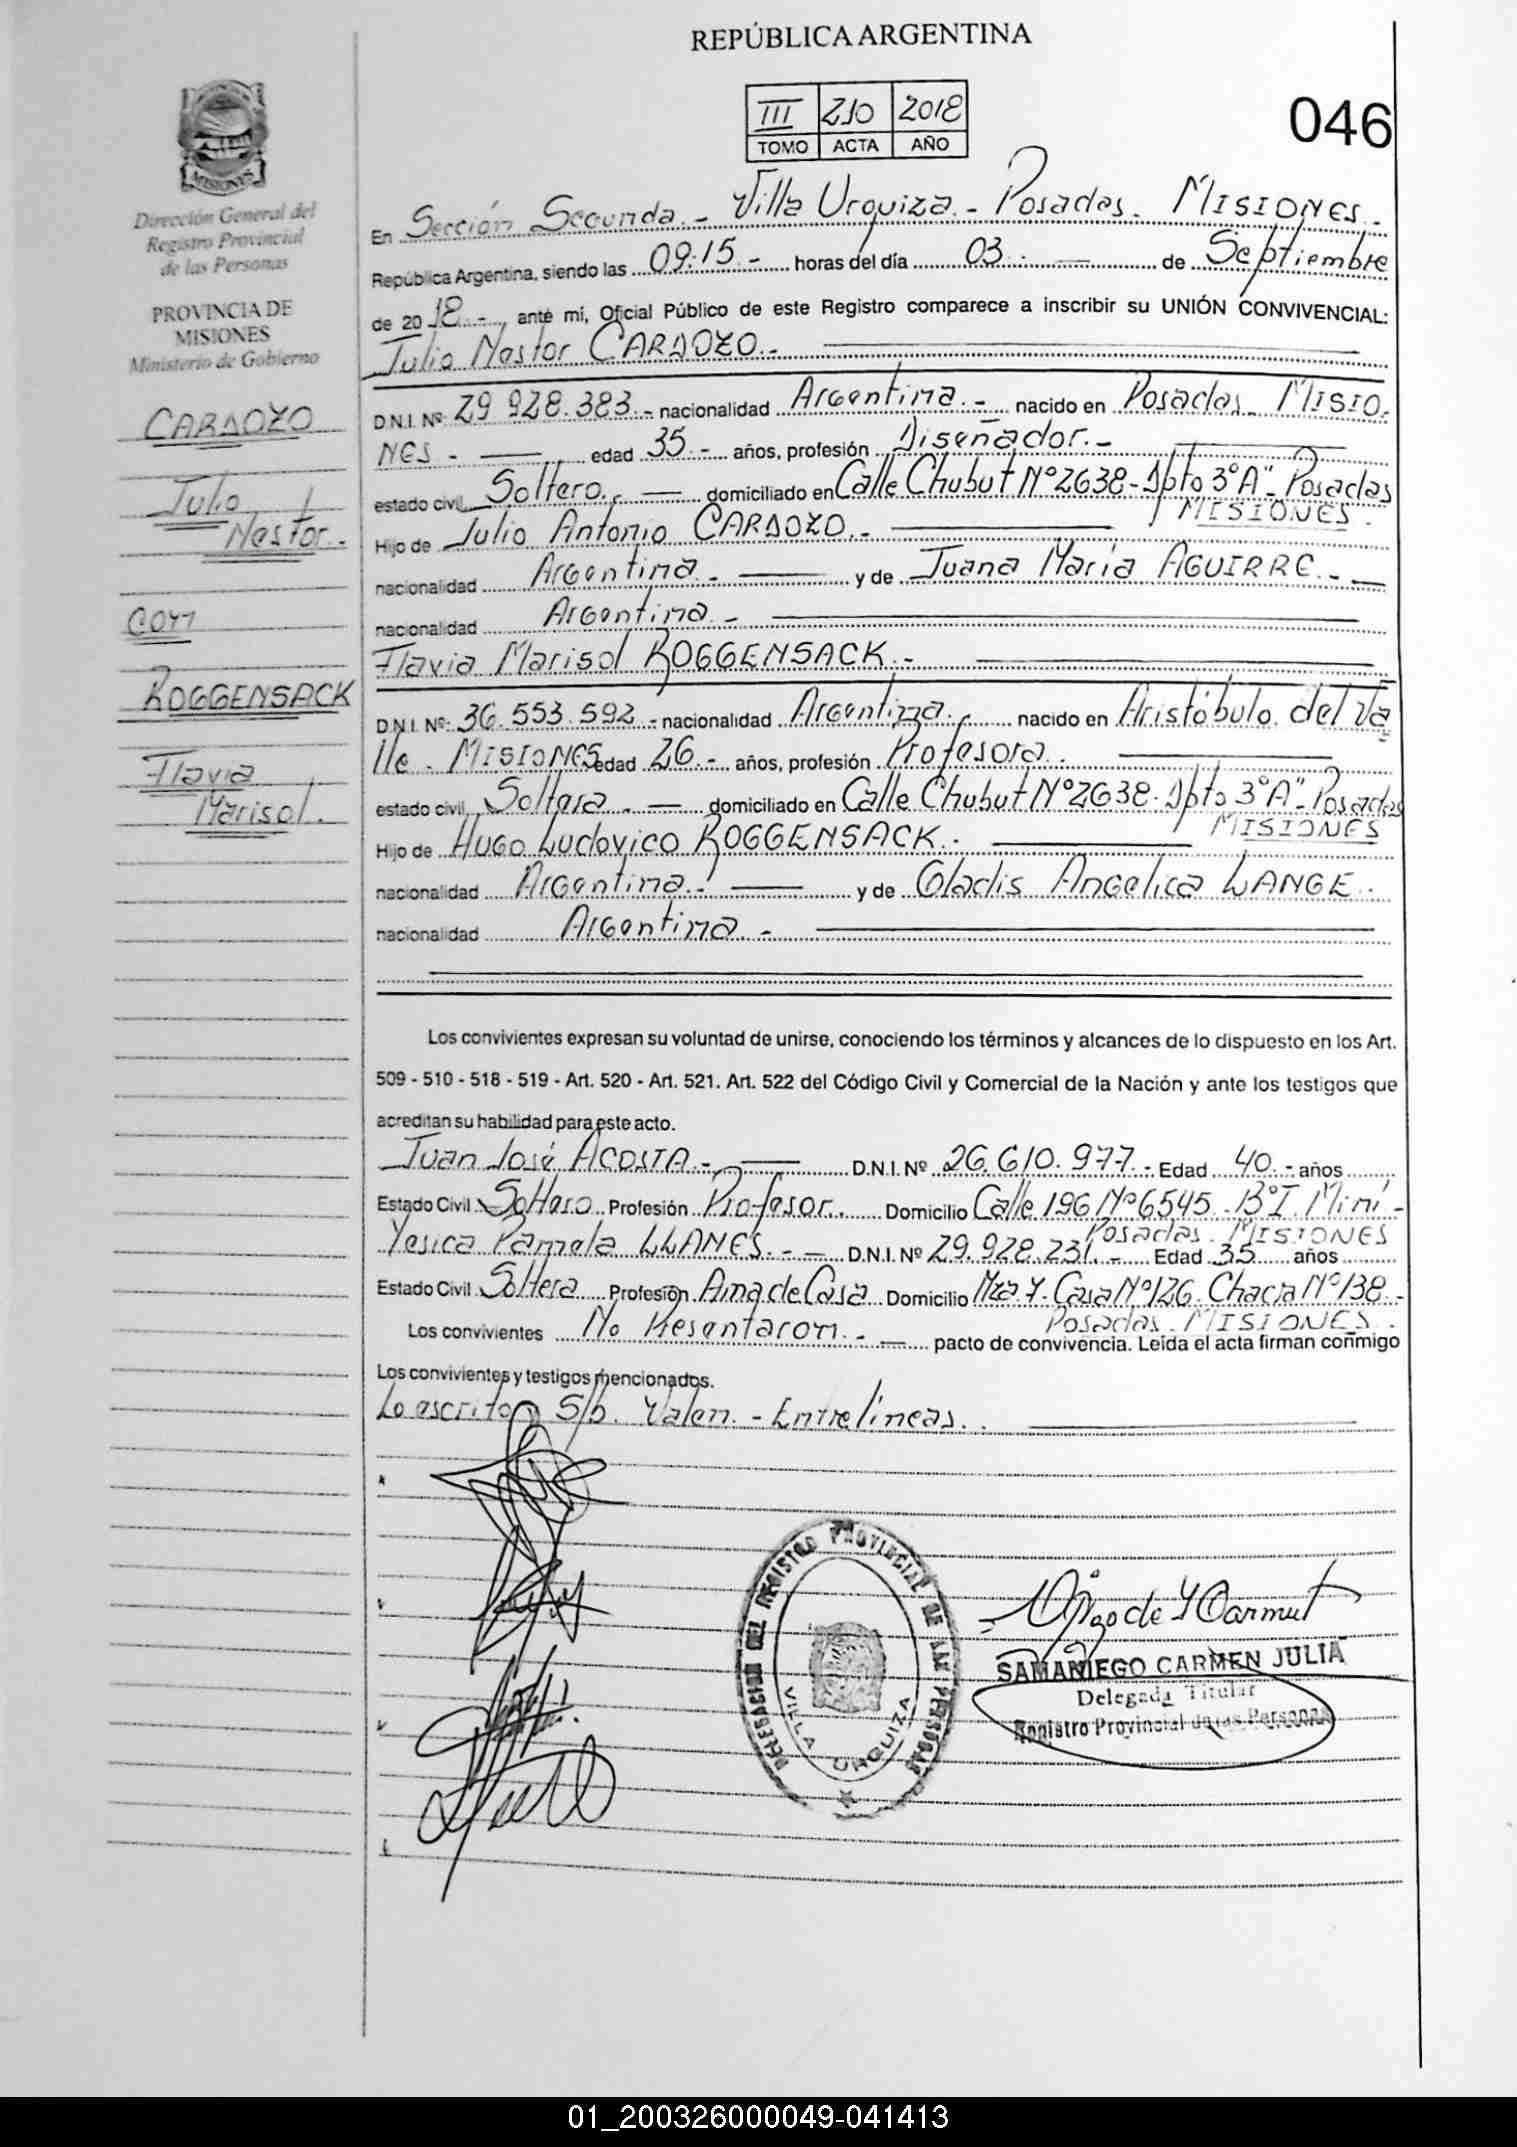 REPÚBLICA ARGENTINA
III 210 2018
TOMO ACTA AÑO
046
MISIONES
Dirección General del
Registro Provincial
de las Personas
PROVINCIA DE
MISIONES
Ministerio de Gobierno
CARDOZO
Julio
Nestor.-
Con
ROGGENSACK
Flavia
Marisol.
En Sección Segunda.- Villa Urquiza.- Posadas. MISIONES.-
República Argentina, siendo las 09:15.- horas del día 03.- de Septiembre
de 2018.-, ante mi, Oficial Público de este Registro comparece a inscribir su UNIÓN CONVIVENCIAL:
Julio Nestor CARDOZO.-
D.N.I. Nº 29.928.383.- nacionalidad Argentina.- nacido en Posadas MISIO.
NES.- edad 35.- años, profesión Diseñador.-
estado civil Soltero.- domiciliado en Calle Chubut Nº 2638- Dpto 3º"A"- Posadas
MISIONES.
Hijo de Julio Antonio CARDOZO.-
nacionalidad Argentina.- y de Juana María AGUIRRE.-
nacionalidad Argentina.-
Flavia Marisol ROGGENSACK.-
D.N.I. Nº: 36.553.592.- nacionalidad Argentina.- nacido en Aristóbulo del Va
lle. MISIONES edad 26.- años, profesión Profesora.-
estado civil Soltera.- domiciliado en Calle Chubut Nº 2638- Dpto 3º"A"- Posadas
MISIONES
Hijo de Hugo Ludovico ROGGENSACK.-
nacionalidad Argentina.- y de Gladis Angelica LANGE.-
nacionalidad Argentina.-
Los convivientes expresan su voluntad de unirse, conociendo los términos y alcances de lo dispuesto en los Art.
509 - 510 - 518 - 519 - Art. 520 - Art. 521. Art. 522 del Código Civil y Comercial de la Nación y ante los testigos que
acreditan su habilidad para este acto.
Juan José ACOSTA.- D.N.I. Nº 26.610.977.- Edad 40.- años
Estado Civil Soltero Profesión Profesor. Domicilio Calle 196 Nº 6545. BºI. Miní-
Posadas. MISIONES
Yesica Pamela LLANES.- D.N.I. Nº 29.928.231.- Edad 35 años
Estado Civil Soltera Profesión Ama de Casa Domicilio Mza Y. Casa Nº 126. Chacra Nº 138.-
Posadas. MISIONES.
Los convivientes No Presentaron.- pacto de convivencia. Leída el acta firman conmigo
Los convivientes y testigos mencionados.
Lo escrito S/b. Valen.- Entrelíneas.
DELEGACION DEL REGISTRO PROVINCIAL DE LAS PERSONAS
VILLA URQUIZA
SAMANIEGO CARMEN JULIA
Delegada Titular
Registro Provincial de las Personas
01_200326000049-041413